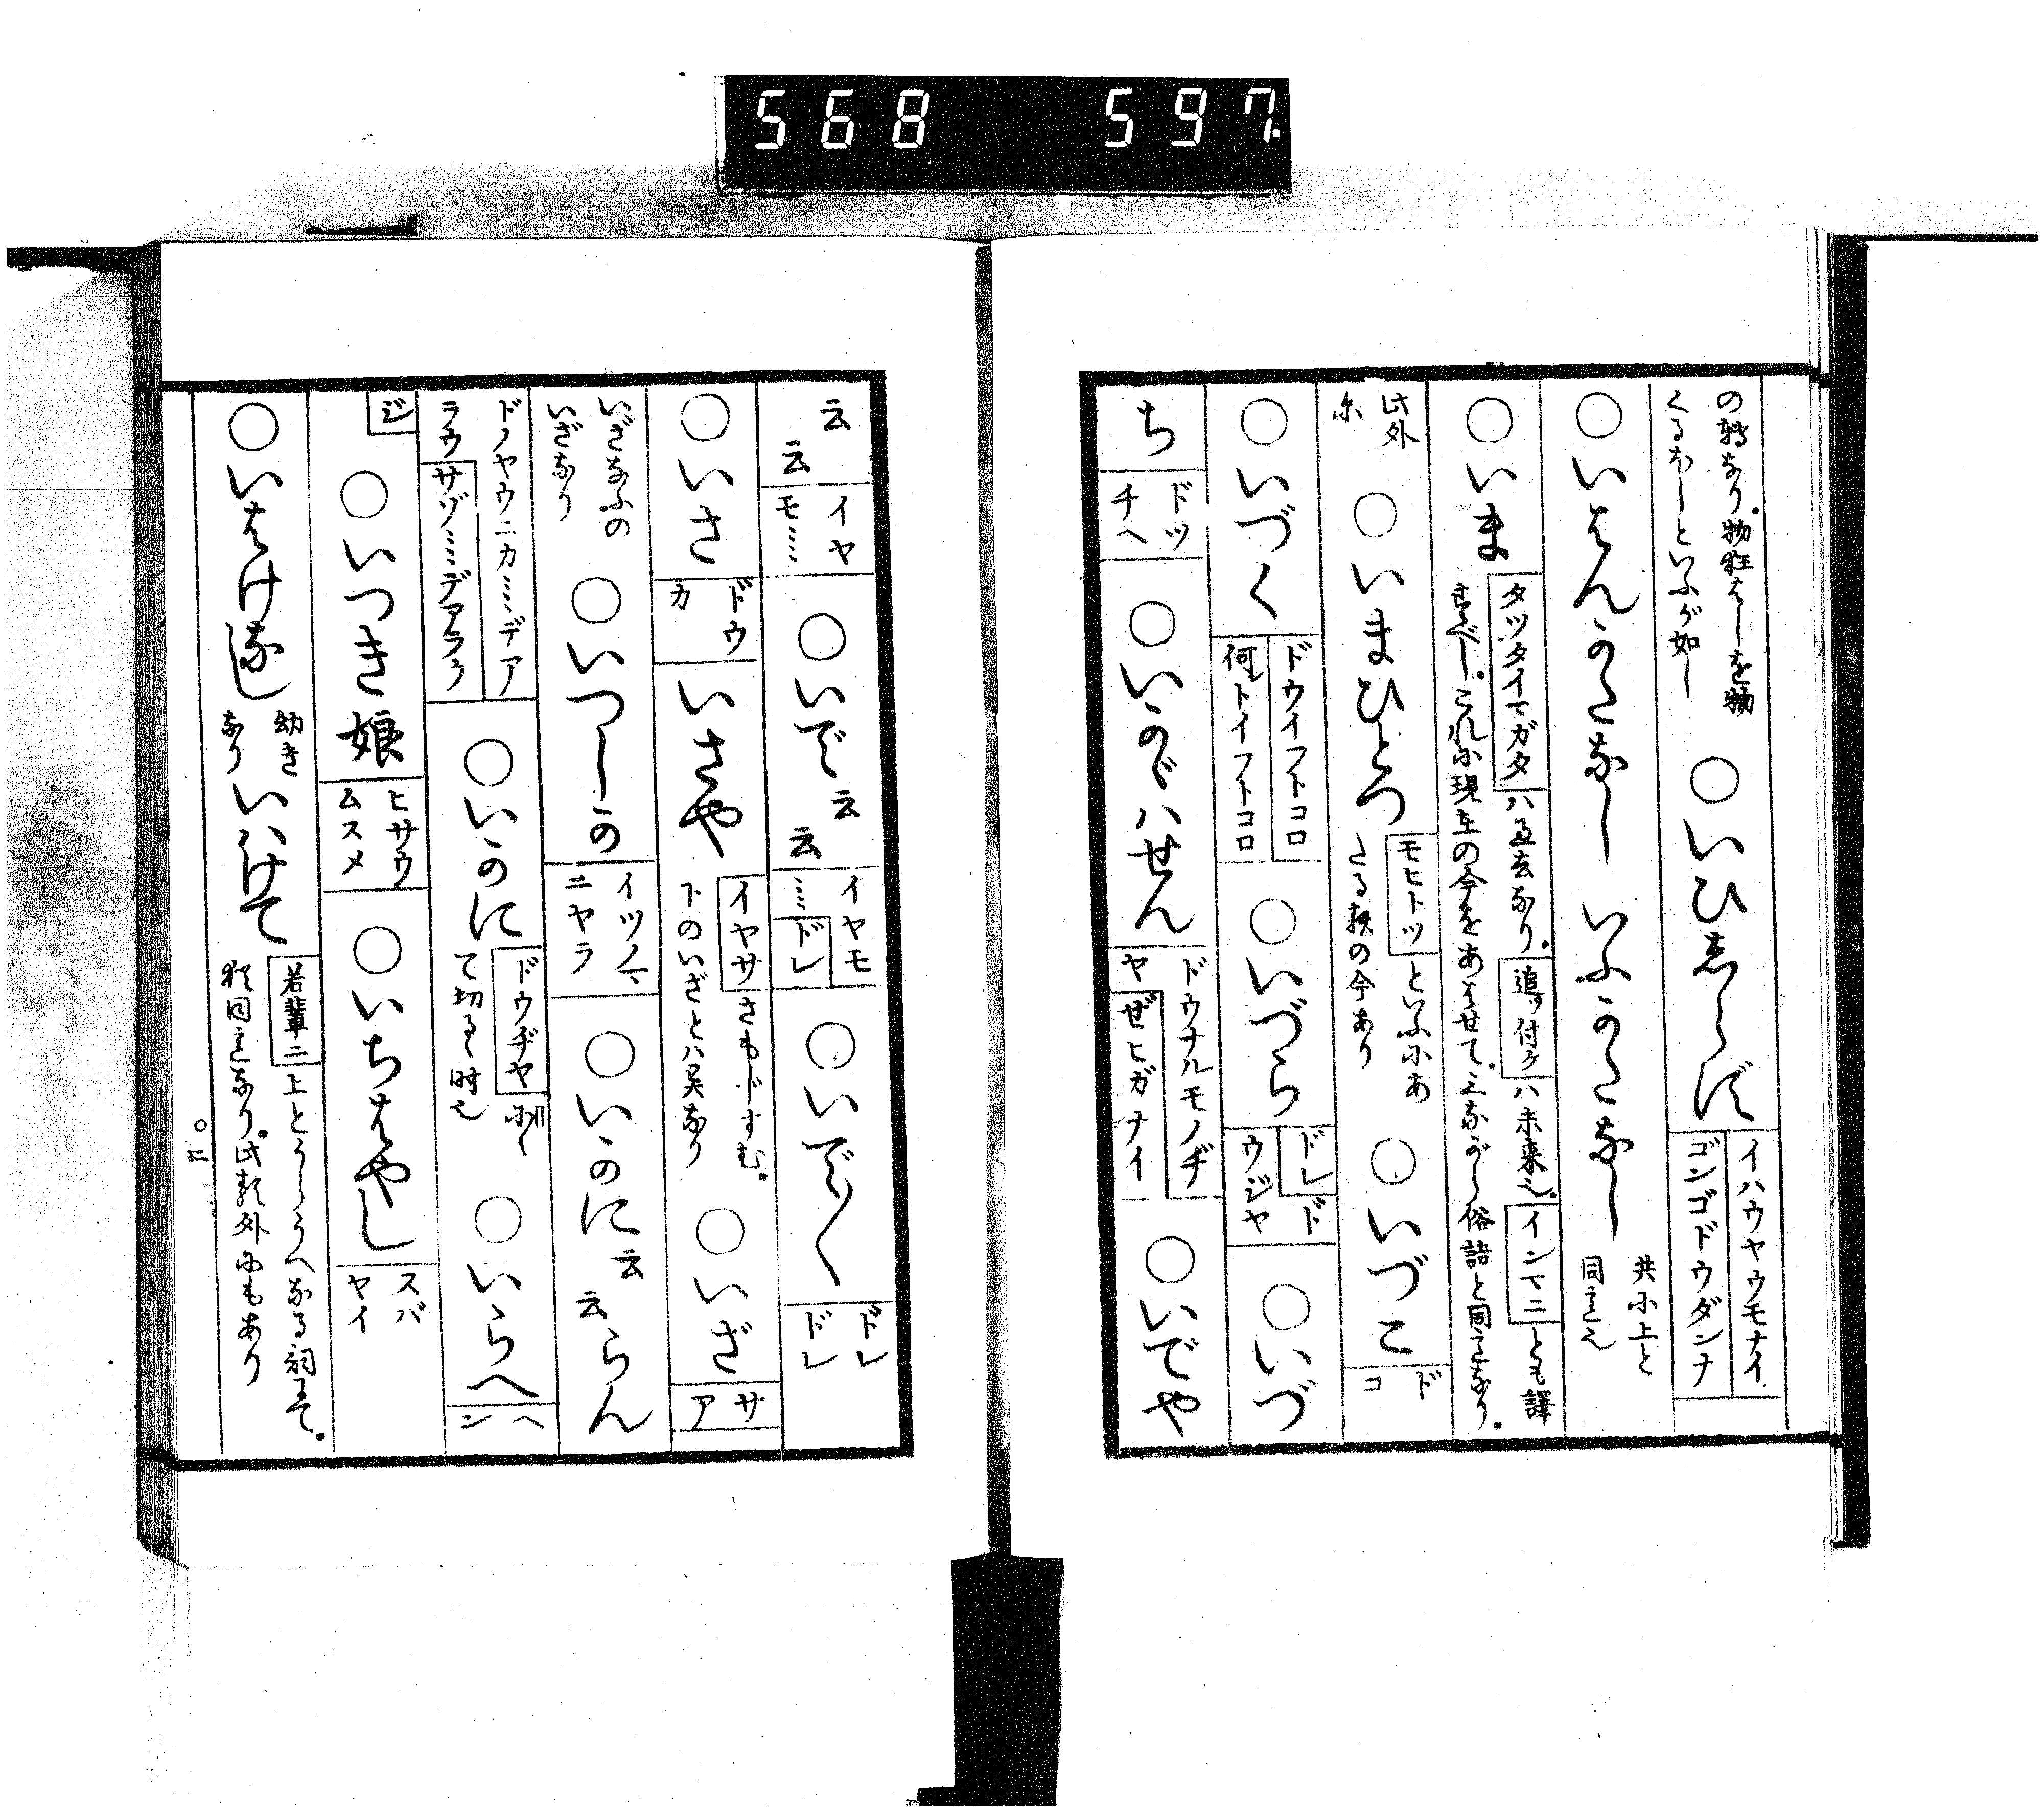 568 597.
の轉なり。物狂はしを物
くるおしといふが如し
○いひしらず
イハウヤウモナイ
ゴンゴドウダンナ
○いはんかたなし いふかたなし
共に上と
同意也
○いま
タツタイマガタ ハ過去なり。追ッ付ケ ハ未来也。インマニ とも譯
すべし。これに現在の今をあはせて。三ながら俗語と同意なり。
此外
に
○いまひとつ
モヒトツ といふにあ
たる類の今あり
○いづこ
ド
コ
○いづく
ドウイフトコロ
何レトイフトコロ
○いづら
ドレ ド
ウジヤ
○いづ
ち
ドツ
チヘ
○いかゞハせん
ドウナルモノヂ
ヤ ゼヒガナイ
○いでや
云
云
イヤ
モミミ
○いで云云
イヤモ
ミミ ドレ
○いで〳〵
ドレ
ドレ
○いさ
ドウ
カ
いさや
イヤサ さもじすむ。
下のいざとハ異なり
○いざ
サ
ア
いざなふの
いざなり
○いつしか
イツノマ
ニヤラ
○いかに云云らん
ドノヤウニカミミデア
ラウ サゾミミデアラウ
○いかに
ドウヂヤ
て切るゝ時也
○いらへ
ヘ
ン
ジ
○いつき娘
ヒサウ
ムスメ
○いちはやし
スバ
ヤイ
○いはけなし
幼き
なり
いはけて
若輩ニ 上とうらうへなる詞にて。
猶同意なり。此類外にもあり
○二